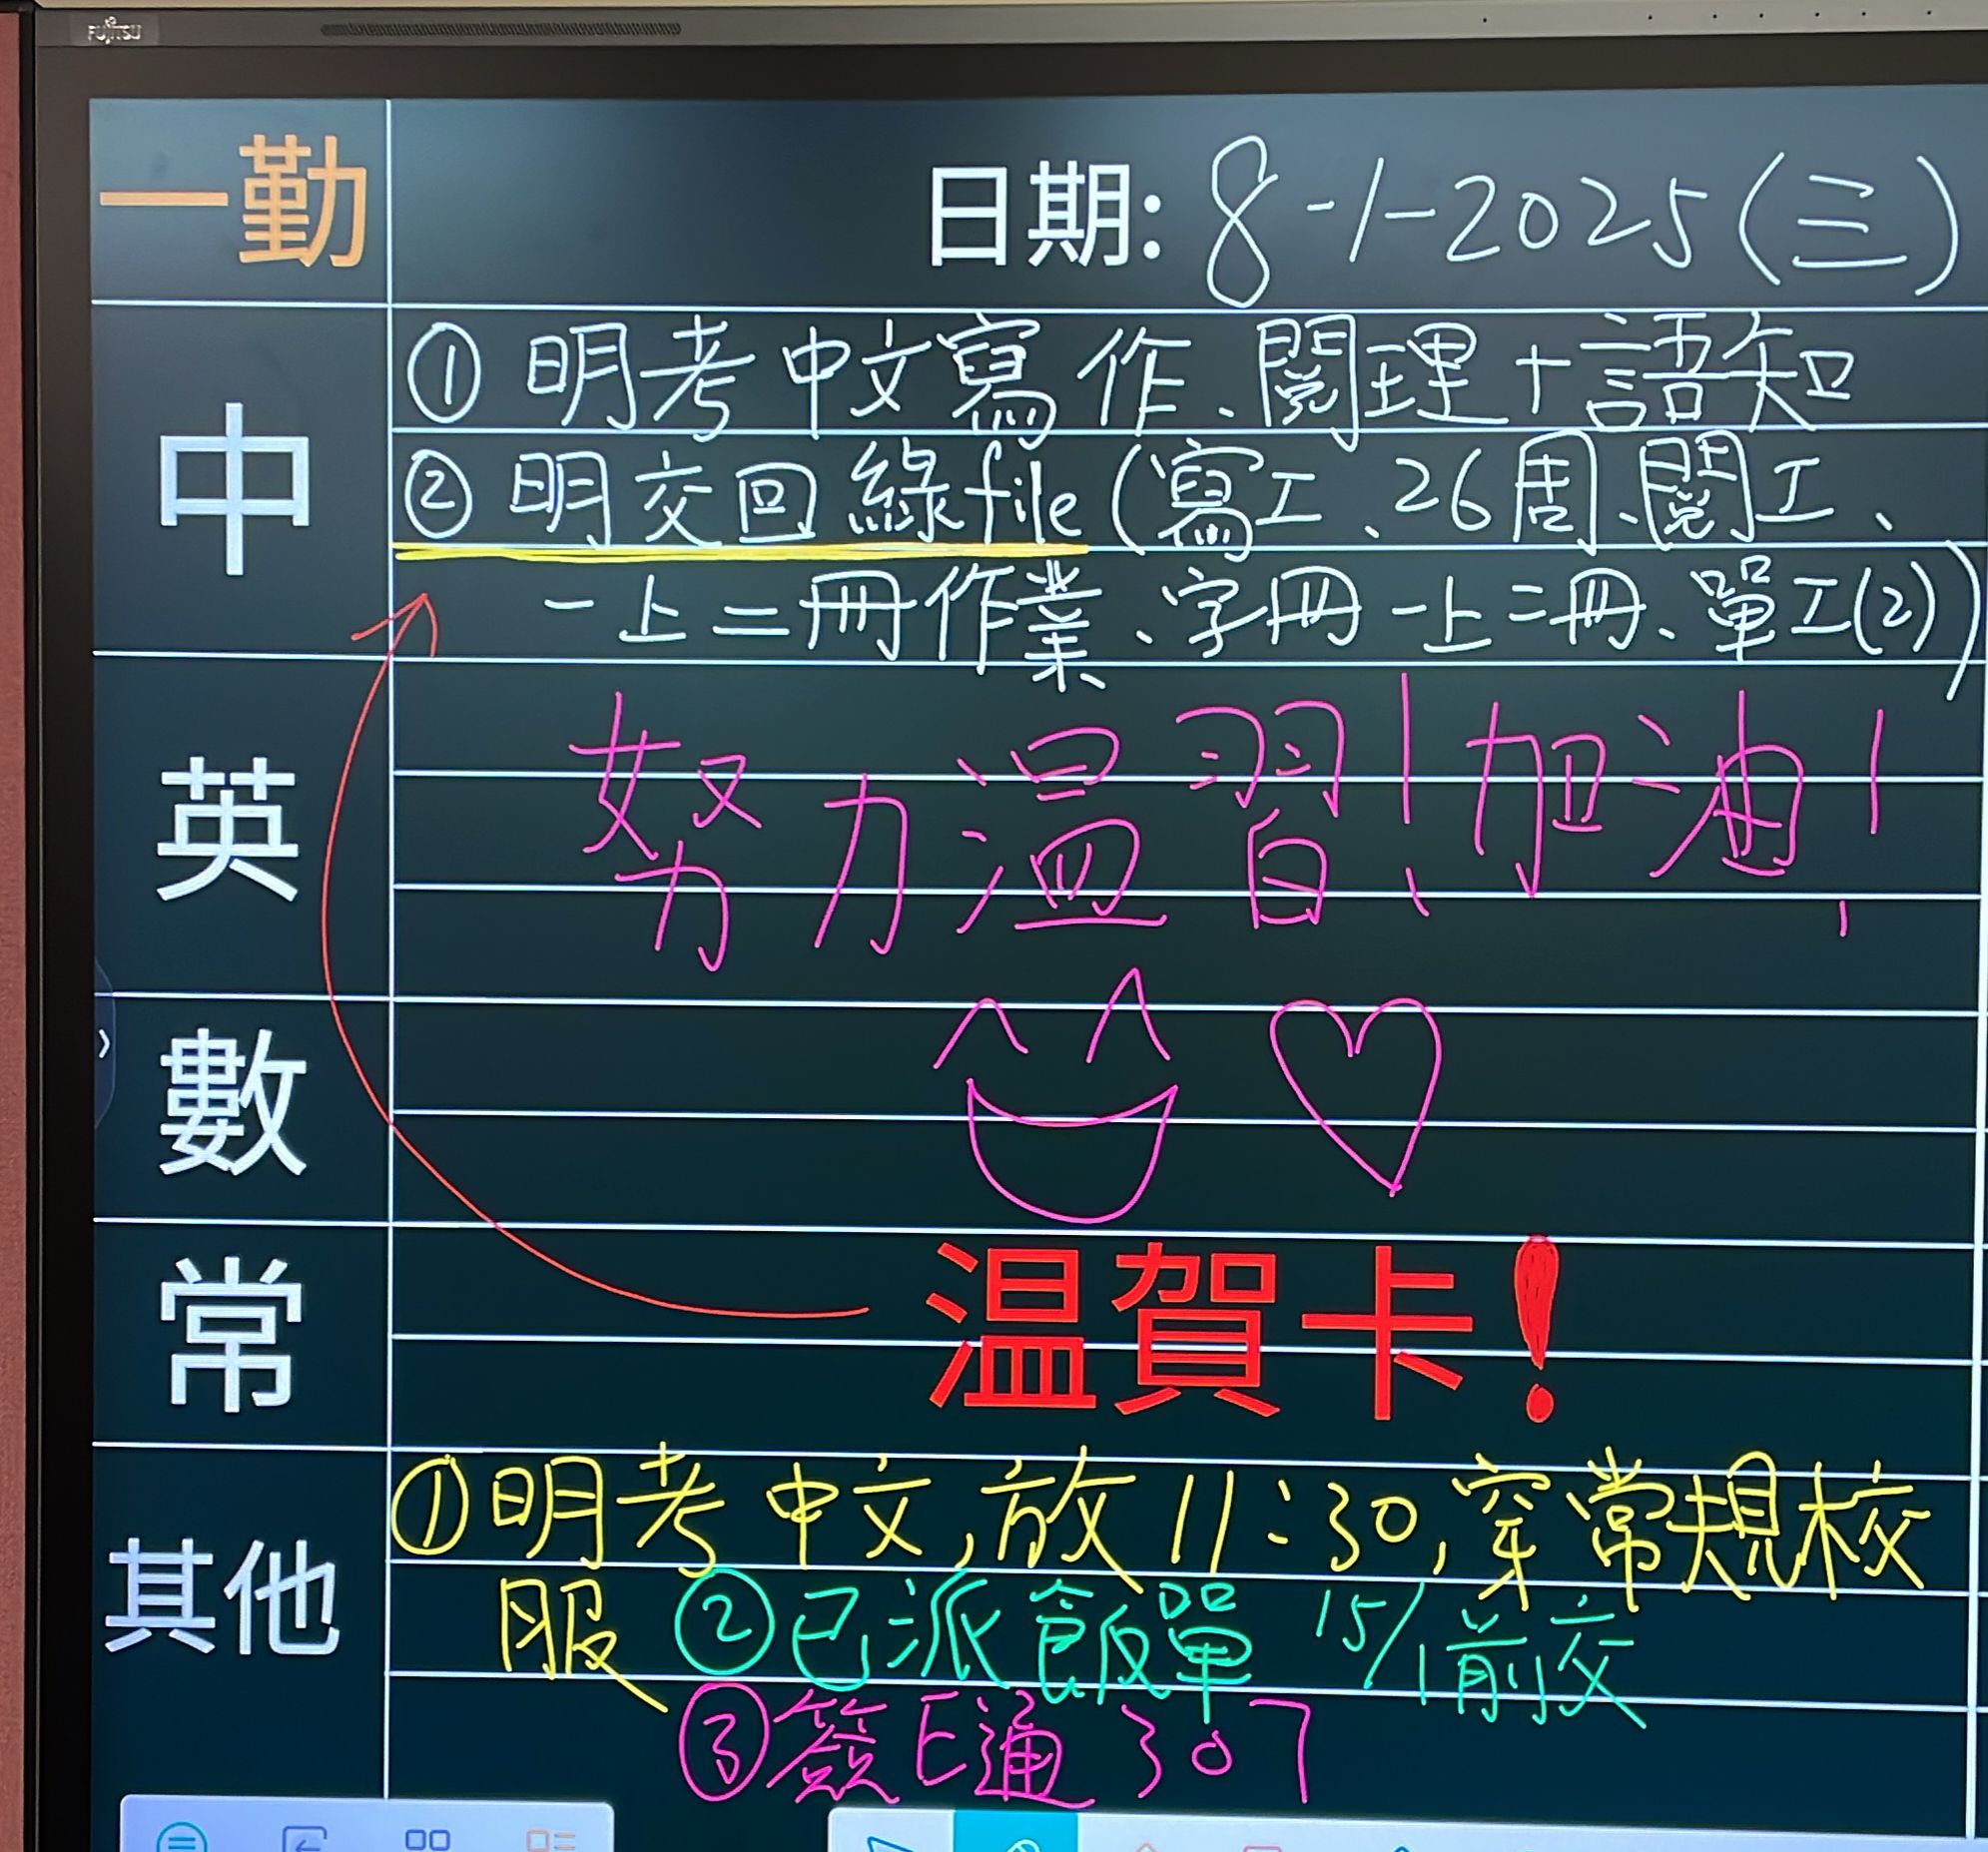 FUJITSU
一勤
日期: 8-1-2025(三)
中
① 明考中文寫作、閱理+語知
② 明交回綠file(寫工、26周、閱工、
一上二冊作業、字冊一上二冊、單工(2))
英
努力溫習!加油!
數
常
温賀卡!
其他
①明考中文,放11:30,穿常規校
服 ②已派飯單 15/1前交
③簽E通307